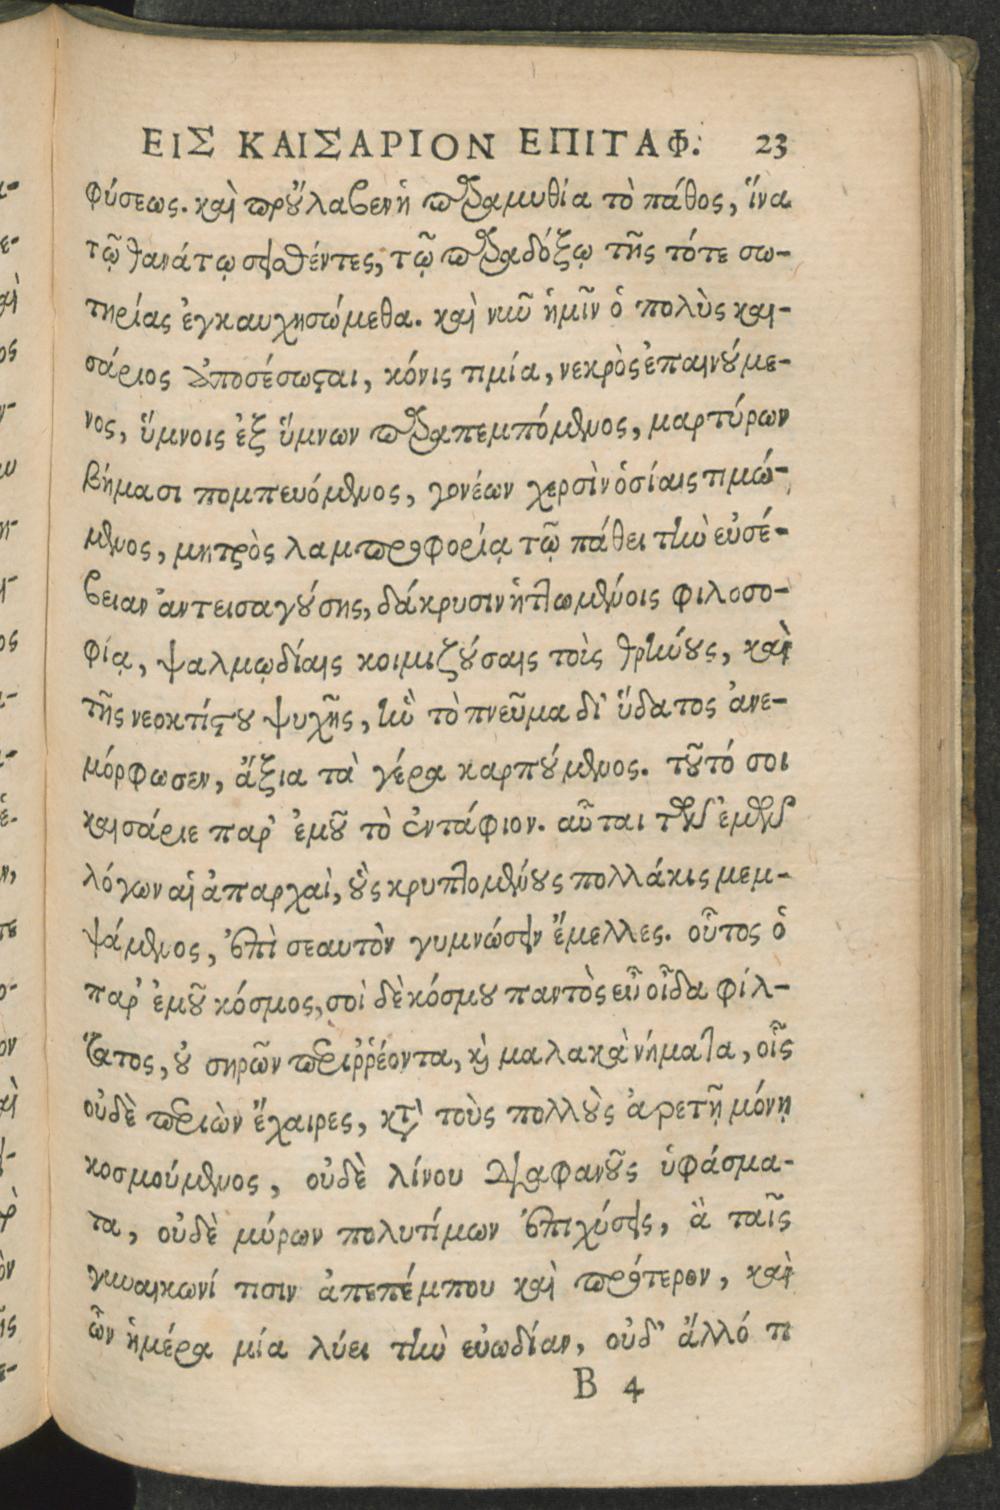 ΕΙΣ ΚΑΙΣΑΡΙΟΝ ΕΠΙΤΑΦ. 23
φύσεως. καὶ προύλαβεν ἡ παραμυθία τὸ πάθος, ἵνα
τῷ θανάτῳ σεισθέντες, τῷ παραδόξῳ τῆς τότε σω-
τηρίας ἐγκαυχησώμεθα. καὶ νῦν ἡμῖν ὁ πολὺς και-
σάριος ἀποσέσωσται, κόνις τιμία, νεκρὸς ἐπαινούμε-
νος, ὕμνοις ἐξ ὕμνων παραπεμπόμενος, μαρτύρων
βήμασι πομπευόμενος, γονέων χερσὶν ὁσίαις τιμώ-
μενος, μητρὸς λαμπροφορίᾳ τῷ πάθει τὴν εὐσέ-
βειαν ἀντεισαγούσης, δάκρυσιν ἡττωμένοις φιλοσο-
φίᾳ, ψαλμῳδίαις κοιμιζούσαις τοὶς θρήνους, καὶ
τῆς νεοκτίστου ψυχῆς, ἣν τὸ πνεῦμα δι' ὕδατος ἀνε-
μόρφωσεν, ἄξια τὰ γέρα καρπούμενος. τοῦτό σοι
καισάριε παρ' ἐμοῦ τὸ ἐντάφιον. αὗται τῶν ἐμῶν
λόγων αἱ ἀπαρχαὶ, οὓς κρυπτομένους πολλάκις μεμ-
ψάμενος, ἐπὶ σεαυτὸν γυμνώσειν ἔμελλες. οὗτος ὁ
παρ' ἐμοῦ κόσμος, σοὶ δὲ κόσμου παντὸς εὖ οἶδα φίλ-
τατος, οὐ σηρῶν περιῤῥέοντα, καὶ μαλακὰ νήματα, οἷς
οὐδὲ περιὼν ἔχαιρες, κατὰ τοὺς πολλοὺς ἀρετῇ μόνῃ
κοσμούμενος, οὐδὲ λίνου διαφανοῦς ὑφάσμα-
τα, οὐδὲ μύρων πολυτίμων ἐπιχύσεις, ἃ ταῖς
γυναικωνί τισιν ἀπεπέμπου καὶ πρότερον, καὶ
ὧν ἡμέρα μία λύει τὴν εὐωδίαν, οὐδ' ἄλλό τι
B 4